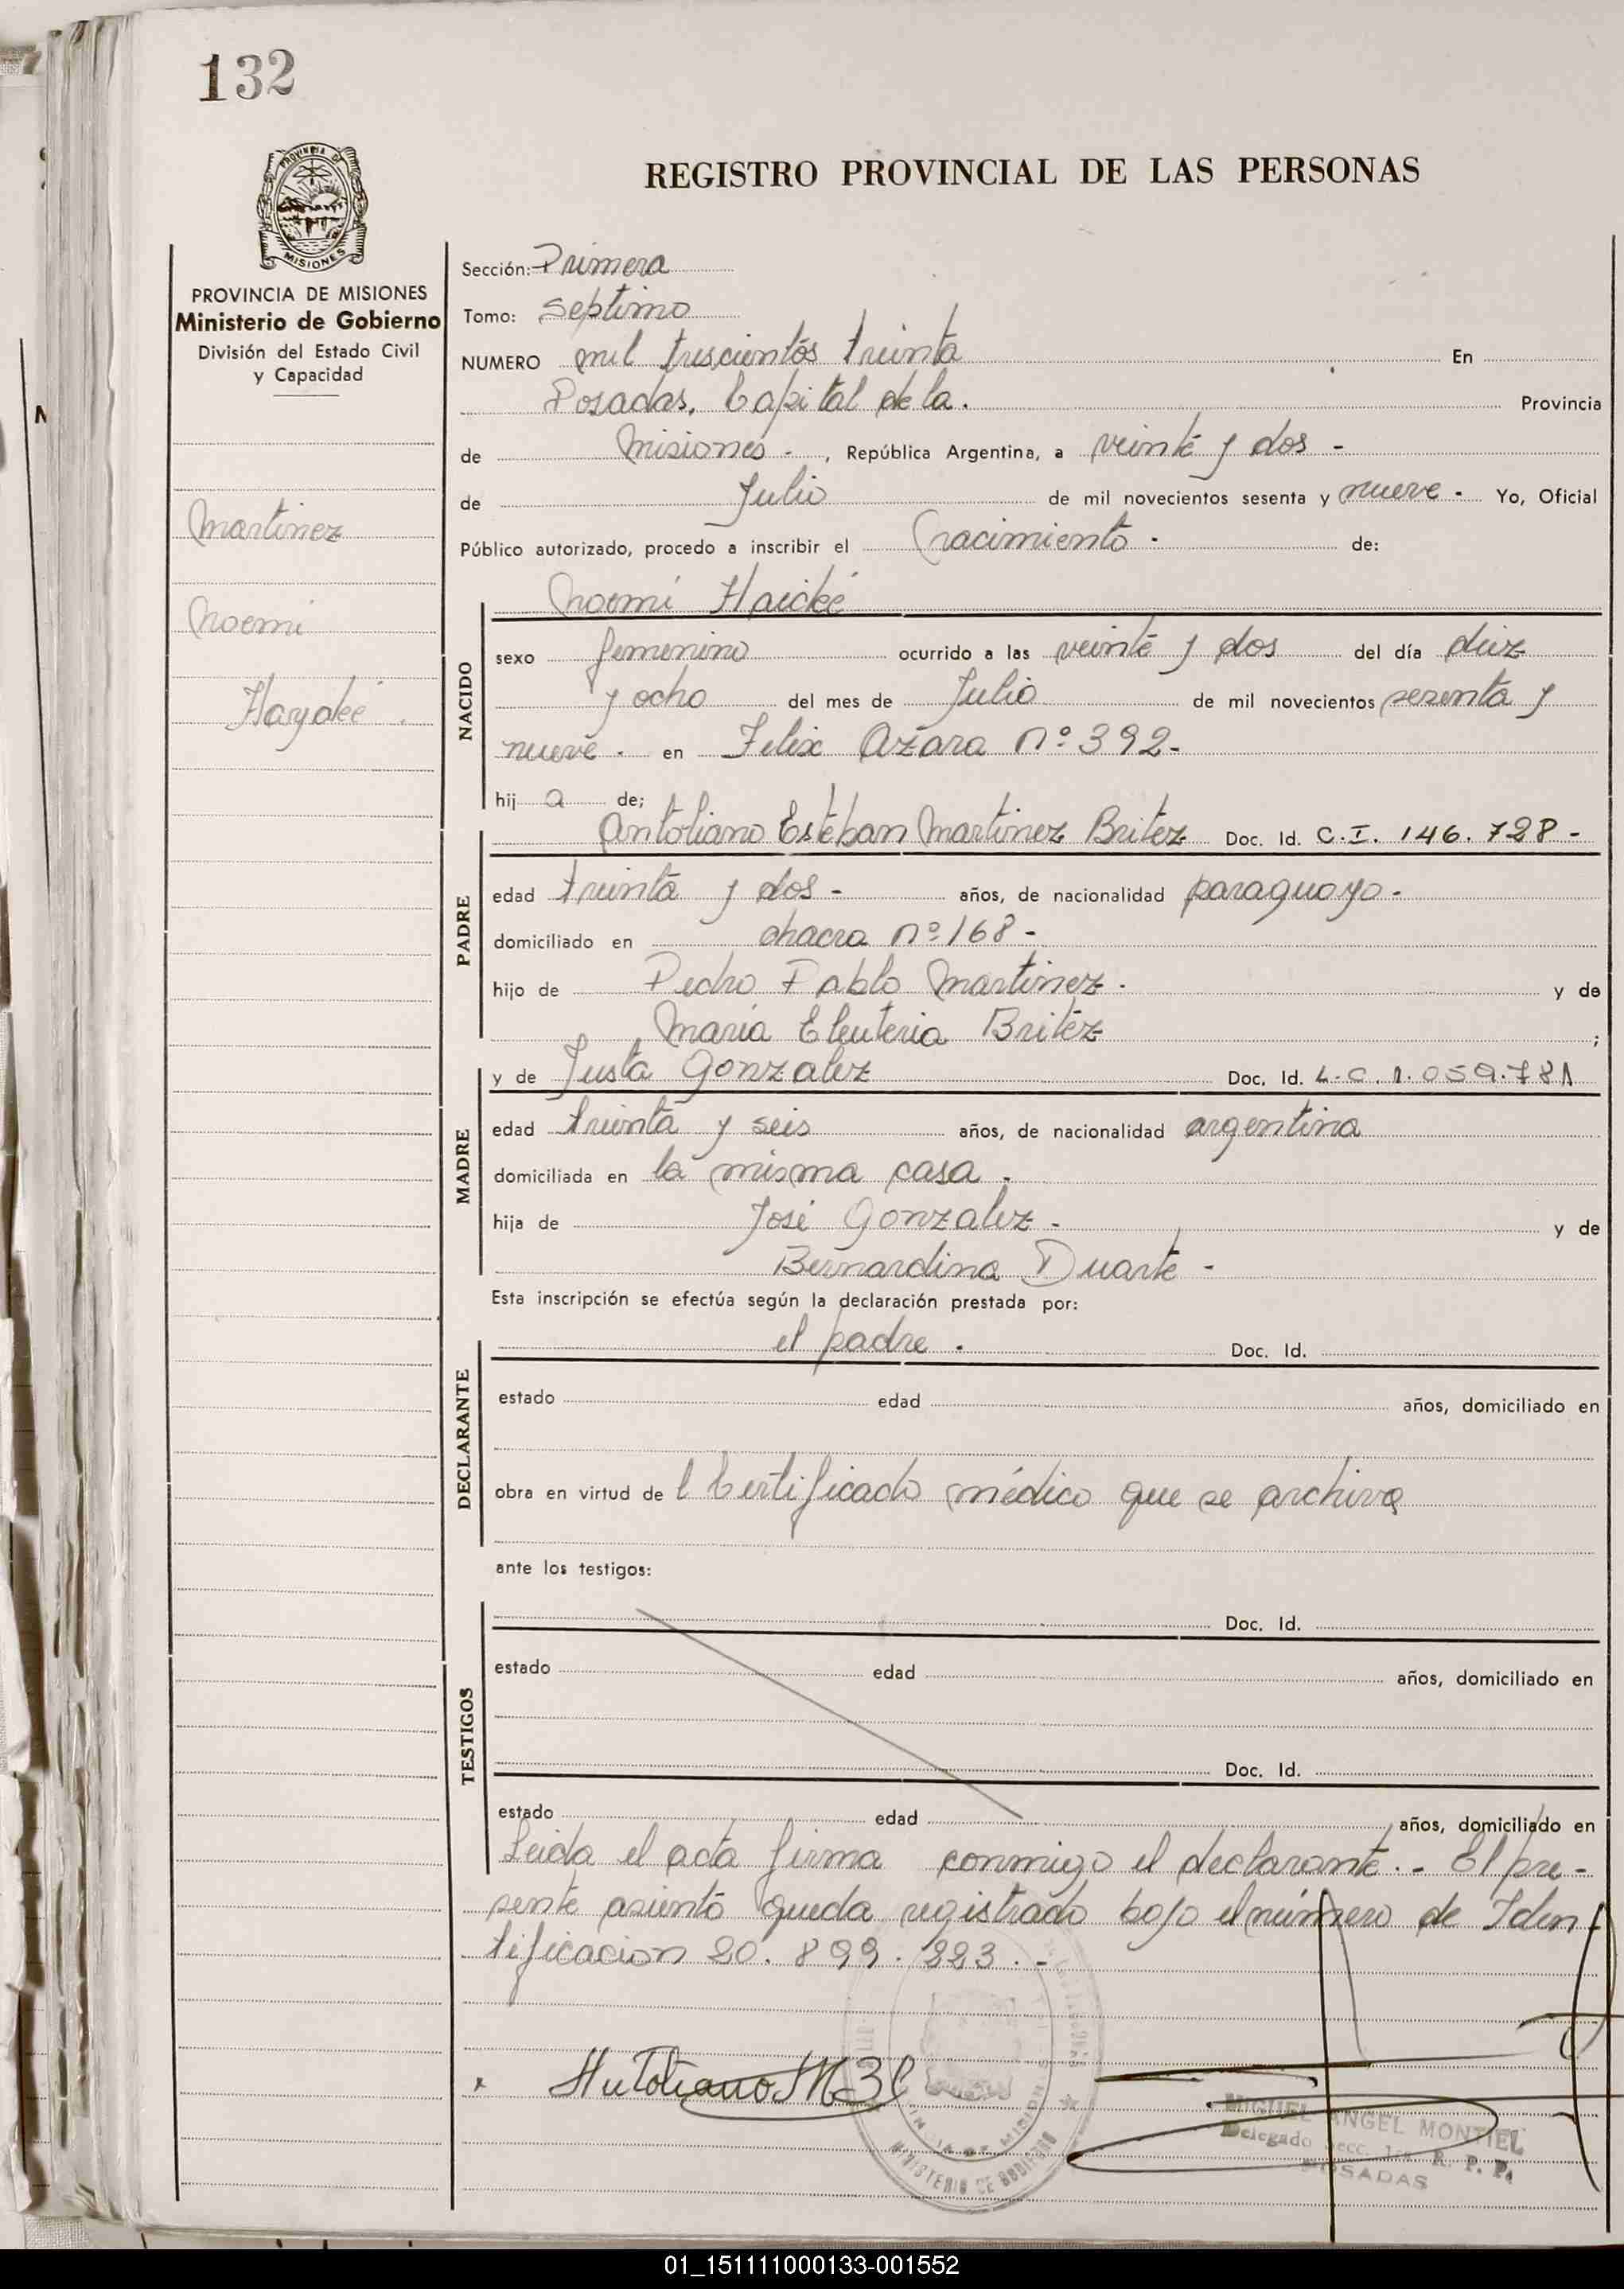 132
PROVINCIA DE
MISIONES
PROVINCIA DE MISIONES
Ministerio de Gobierno
División del Estado Civil
y Capacidad
Martinez
Noemi
Haydeé.
REGISTRO PROVINCIAL DE LAS PERSONAS
Sección: Primera
Tomo: Septimo
NUMERO mil trescientos treinta En
Posadas, Capital de la. Provincia
de Misiones - , República Argentina, a veinte y dos -
de Julio de mil novecientos sesenta y nueve - Yo, Oficial
Público autorizado, procedo a inscribir el nacimiento - de:
Noemí Haideé
NACIDO
sexo femenino ocurrido a las veinte y dos del día diez
y ocho del mes de Julio de mil novecientos sesenta y
nueve - en Felix Azara nº 392-
hij a de;
Antoliano Esteban Martinez Britez Doc. Id. C.I. 146.728-
PADRE
edad treinta y dos - años, de nacionalidad paraguayo -
domiciliado en chacra nº 168 -
hijo de Pedro Pablo Martinez - y de
María Eleuteria Britez ;
y de Justa Gonzalez Doc. Id. L.C. 1.059.781
MADRE
edad treinta y seis años, de nacionalidad argentina
domiciliada en la misma casa -
hija de José Gonzalez - y de
Bernardina Duarte -
Esta inscripción se efectúa según la declaración prestada por:
el padre . Doc. Id.
DECLARANTE
estado edad años, domiciliado en
obra en virtud de l Certificado médico que se archiva
ante los testigos:
Doc. Id.
TESTIGOS
estado edad años, domiciliado en
Doc. Id.
estado edad años, domiciliado en
Leida el acta firma conmigo el declarante.- El pre-
sente asiento queda registrado bajo el número de Iden-
tificacion 20.899.223.-
MINISTERIO DE GOBIERNO
MIGUEL ANGEL MONTIEL
Delegado Secc. 1ra R. P. P.
POSADAS
01_151111000133-001552